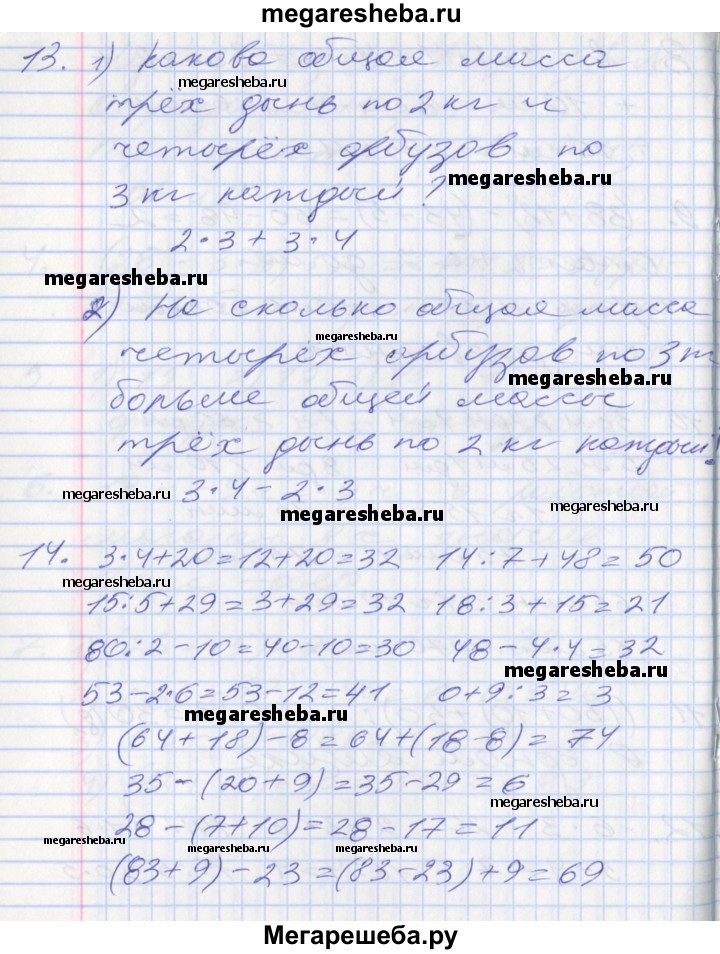 megaresheba.ru
13. 1) Какова общая масса
megaresheba.ru
трёх дынь по 2 кг и
четырёх арбузов по
megaresheba.ru
3 кг каждый?
2·3+3·4
megaresheba.ru
2) На сколько общая масса
megaresheba.ru
четырёх арбузов по 3
megaresheba.ru
больше общей массы
трёх дынь по 2 кг каждый?
megaresheba.ru 3·4-2·3
megaresheba.ru
14. 3·4+20=12+20=32 14:7+48=50
megaresheba.ru
15:5+29=3+29=32 18:3+15=21
80:2-10=40-10=30 48-4·4=32
megaresheba.ru
53-2·6=53-12=41 0+9:3=3
megaresheba.ru
(64+18)-8=64+(18-8)=74
35-(20+9)=35-29=6
megaresheba.ru
28-(7+10)=28-17=11
megaresheba.ru megaresheba.ru megaresheba.ru
(83+9)-23=(83-23)+9=69
Мегарешеба.ру